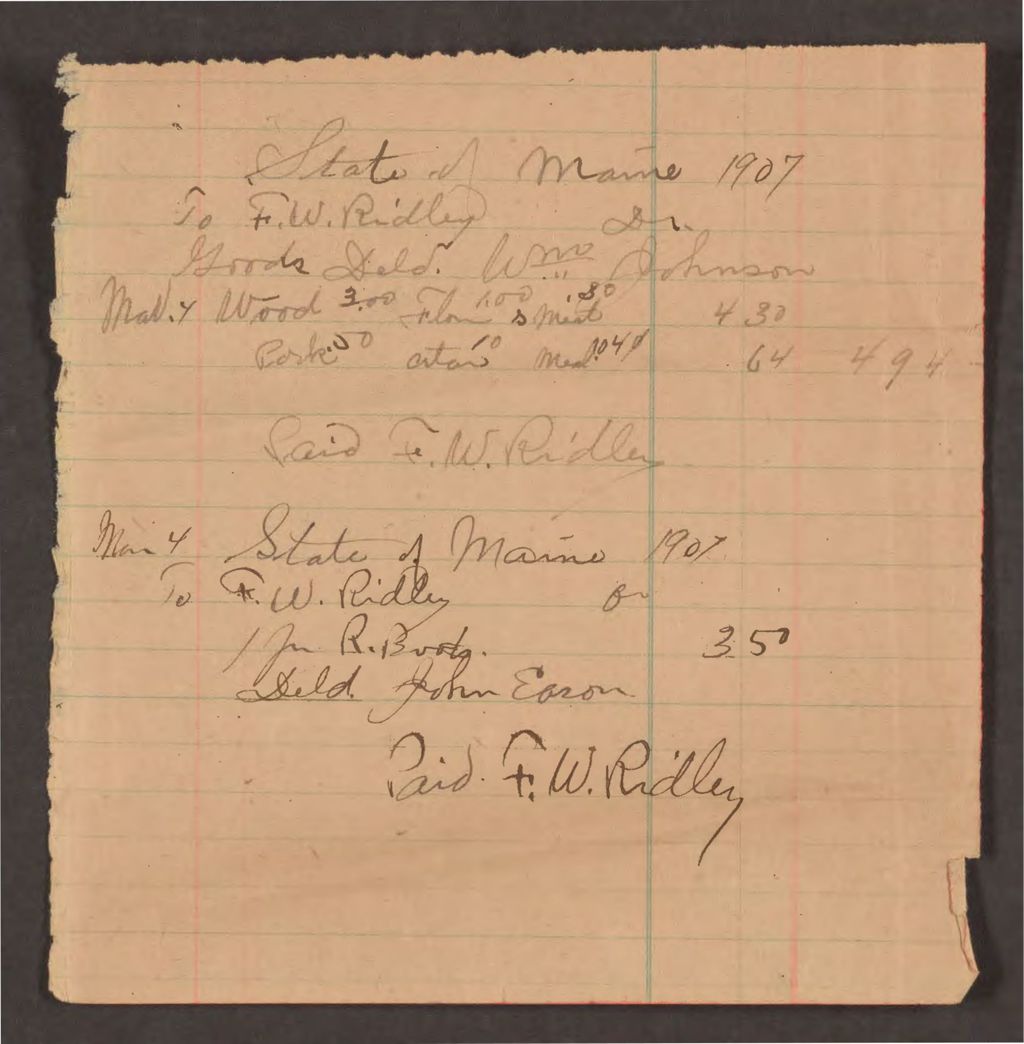 State of Maine 1907
To F. W. Ridley Dr.
Goods Deld. Wm Johnson
Mar. 4 Wood 3.00 Flour 1.00 Meat 4 30
Pork .50 10 Meal 04 64 4 94
Paid F. W. Ridley
Mar 4 State of Maine 1907
To F. W. Ridley Dr
1 Pr R. Boots. 3.50
Deld. John Eason
Paid. F. W. Ridley